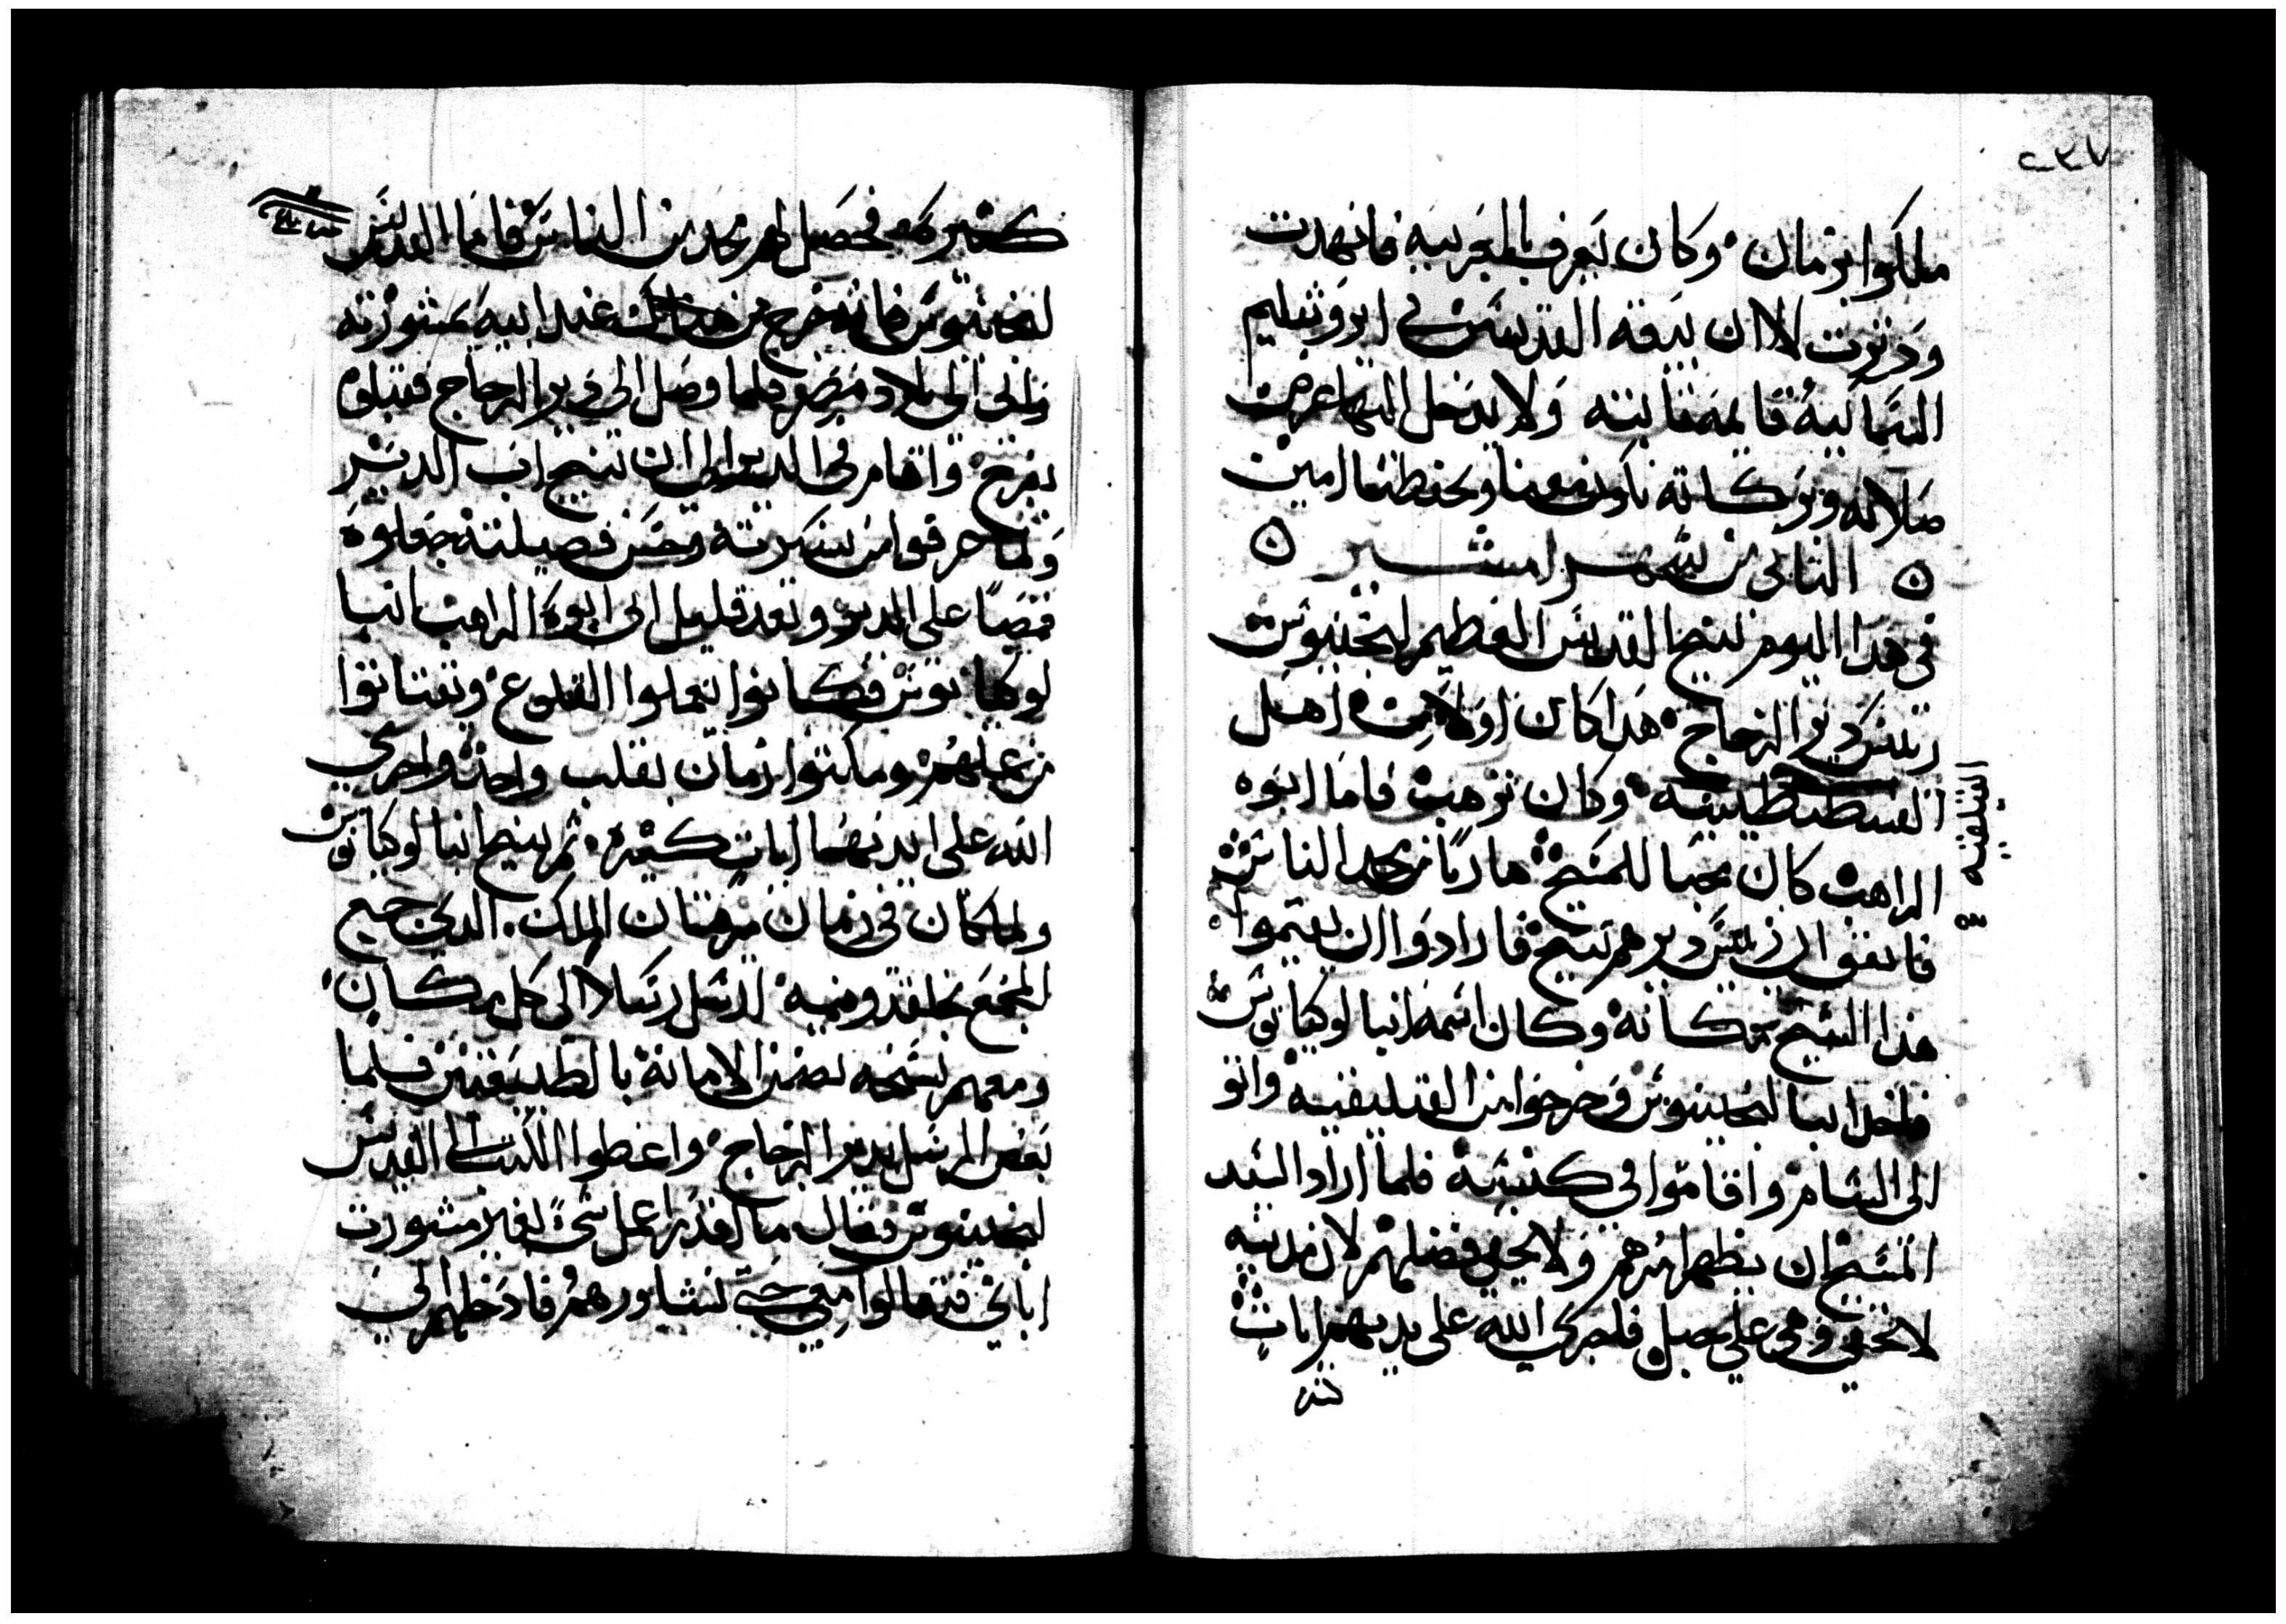 ٢٣٧
ملكوا بزمان وكان تعرف بالمغربيه فانهدت
ودثرت الا ان بيعة القديس في ايروشليم
السمائية قايمة ثابته ولا يدخل اليها عرض
صلاته وبركاته تكون معنا وتحفظنا امين
الثاني من شهر امشير
في هذا اليوم تنيح القديس العظيم لنجينوس
ريس دير الزجاج هذا كان اولا من اهل
القسطنطينيه وكان ترهب فاما ابوه
القيليقيه
الراهب كان محبا للمسيح هاربا من مجد الناس
فاتفق ان ريس ديرهم تنيح فارادوا ان يقيموا
هذا الشيخ مكانه وكان اسمه انبا لوكيانوس
فاخد انبا لنجينوس وخرجوا من القيليقيه واتو
الى الشام واقاموا في كنيسه فلما اراد السيد
المسيح ان يظهر امرهم ولا يخفي فضلهم لان مدينه
لا تخفي وهي علي جبل فاجري الله على يديهم ايات
كثيره
كثيره فحصل لهم مجد من الناس فاما القديس
لنجينوس فانه خرج من عند ابيه بمشورته
واتى الى بلاد مصر فلما وصل الى دير الزجاج فقبلوه
بفرح واقام في الدير الى ان تنيح اب الدير
ولما عرفوا من سيرته وحسن فضيلته جعلوه
قمصا على الدير وبعد قليل اتى ابوه الراهب انبا
لوكيانوس فكانوا يعملوا القلوع ويقتاتوا
من عملهم ومكثوا زمان بقلب واحد واجري
الله على ايديهما ايات كثيره ثم تنيح انبا لوكيانوس
ولما كان في زمان مرقيان الملك الذي جمع
المجمع بخلقدونيه ارسل رسلا الى كل مكان
ومعهم نسخه تضمن الامانة بالطبيعتين فلما
بعض الرسل بدير الزجاج واعطوا الكتاب الى القديس
لنجينوس فقال ما اقدر اعمل شي بغير مشورت
ابائي فتعالوا معي حتى نشاورهم فادخلهم الى